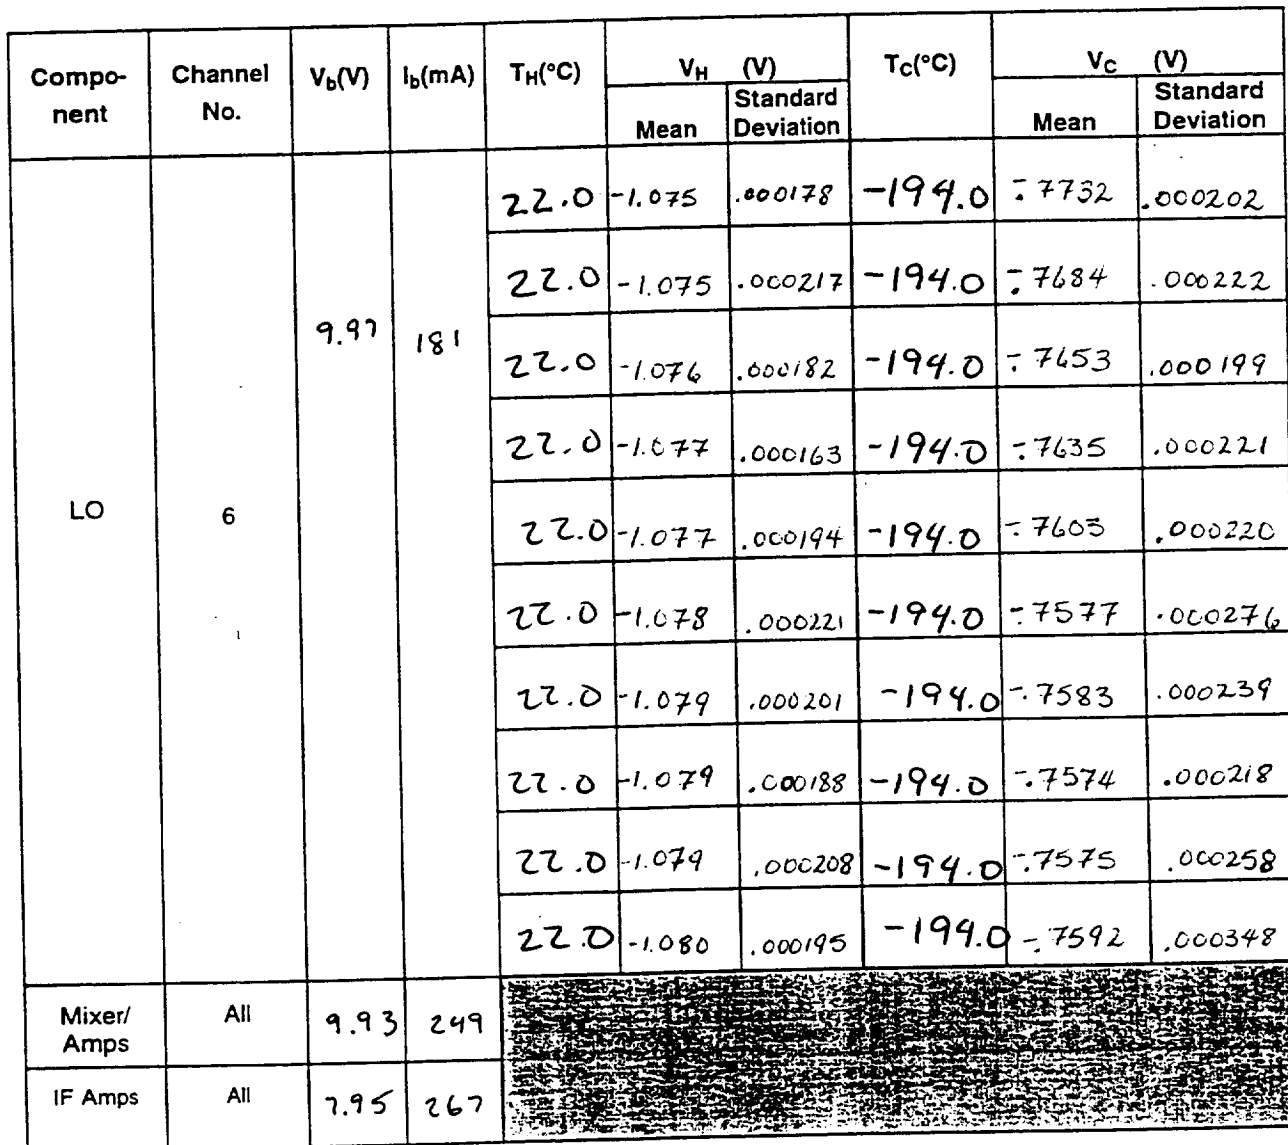 Compo-nent | Channel No. | Vb(V) | Ib(mA) | TH(°C) | VH (V) Mean | VH (V) Standard Deviation | TC(°C) | VC (V) Mean | VC (V) Standard Deviation
LO | 6 | 9.97 | 181 | 22.0 | -1.075 | .000178 | -194.0 | -.7732 | .000202
22.0 | -1.075 | .000217 | -194.0 | -.7684 | .000222
22.0 | -1.076 | .000182 | -194.0 | -.7653 | .000199
22.0 | -1.077 | .000163 | -194.0 | -.7635 | .000221
22.0 | -1.077 | .000194 | -194.0 | -.7603 | .000220
22.0 | -1.078 | .000221 | -194.0 | -.7577 | .000276
22.0 | -1.079 | .000201 | -194.0 | -.7583 | .000239
22.0 | -1.079 | .000188 | -194.0 | -.7574 | .000218
22.0 | -1.079 | .000208 | -194.0 | -.7575 | .000258
22.0 | -1.080 | .000195 | -194.0 | -.7592 | .000348
Mixer/ Amps | All | 9.93 | 249
IF Amps | All | 7.95 | 267